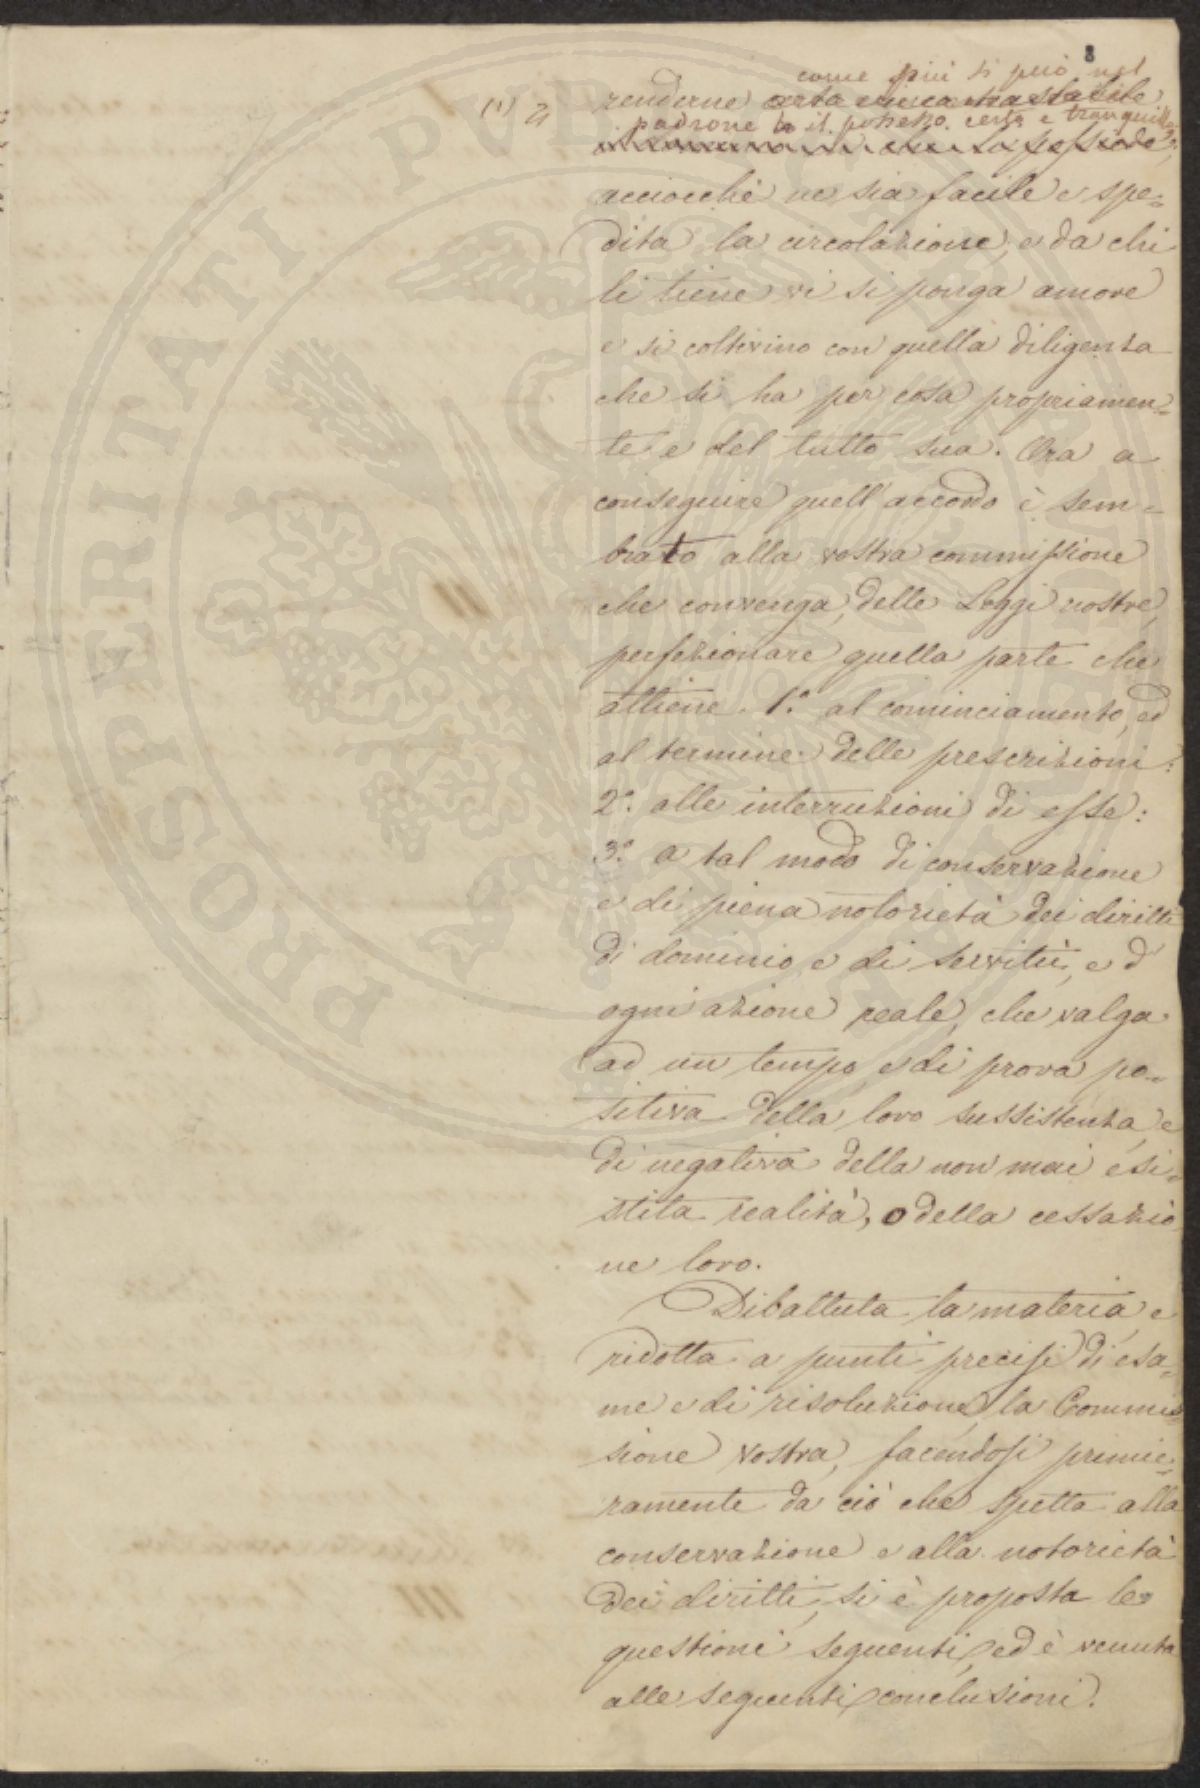 8
come più si può nel
(1) 2 renderne certa
padrone il possesso certo e tranquillo
acciocchè ne sia facile e spe=
dita la circolazione, e da chi
li tiene vi si ponga amore
e si coltivino con quella diligenza
che si ha per cosa propriamen=
te e del tutto sua. Ora a
conseguire quell'accordo è sem=
brato alla vostra commissione
che convenga, delle Leggi nostre,
perfezionare quella parte che
attiene. 1.° al cominciamento, ed
al termine delle prescrizioni:
2.° alle interruzioni di esse:
3.° a tal modo di conservazione
e di piena notorietà dei diritti
di dominio e di servitù, e d'
ogni azione reale, che valga
ad un tempo e di prova po=
sitiva della loro sussistenza, e
di negativa della non mai esi=
stita realità, o della cessazio
ne loro.
Dibattuta la materia, e
ridotta a punti precisi di esa=
me e di risoluzione, la Commis
sione vostra, facendosi primie=
ramente da ciò che spetta alla
conservazione e alla notorietà
dei diritti, si è proposta le
questioni seguenti, ed è venuta
alle seguenti conclusioni.
PROSPERITATI PUBLICAE